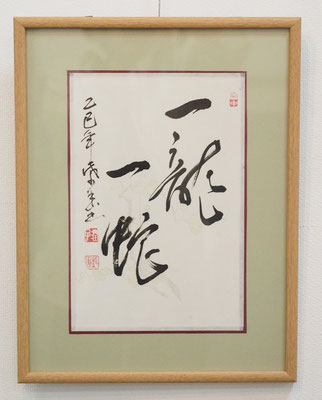 一龍
一蛇
乙巳年